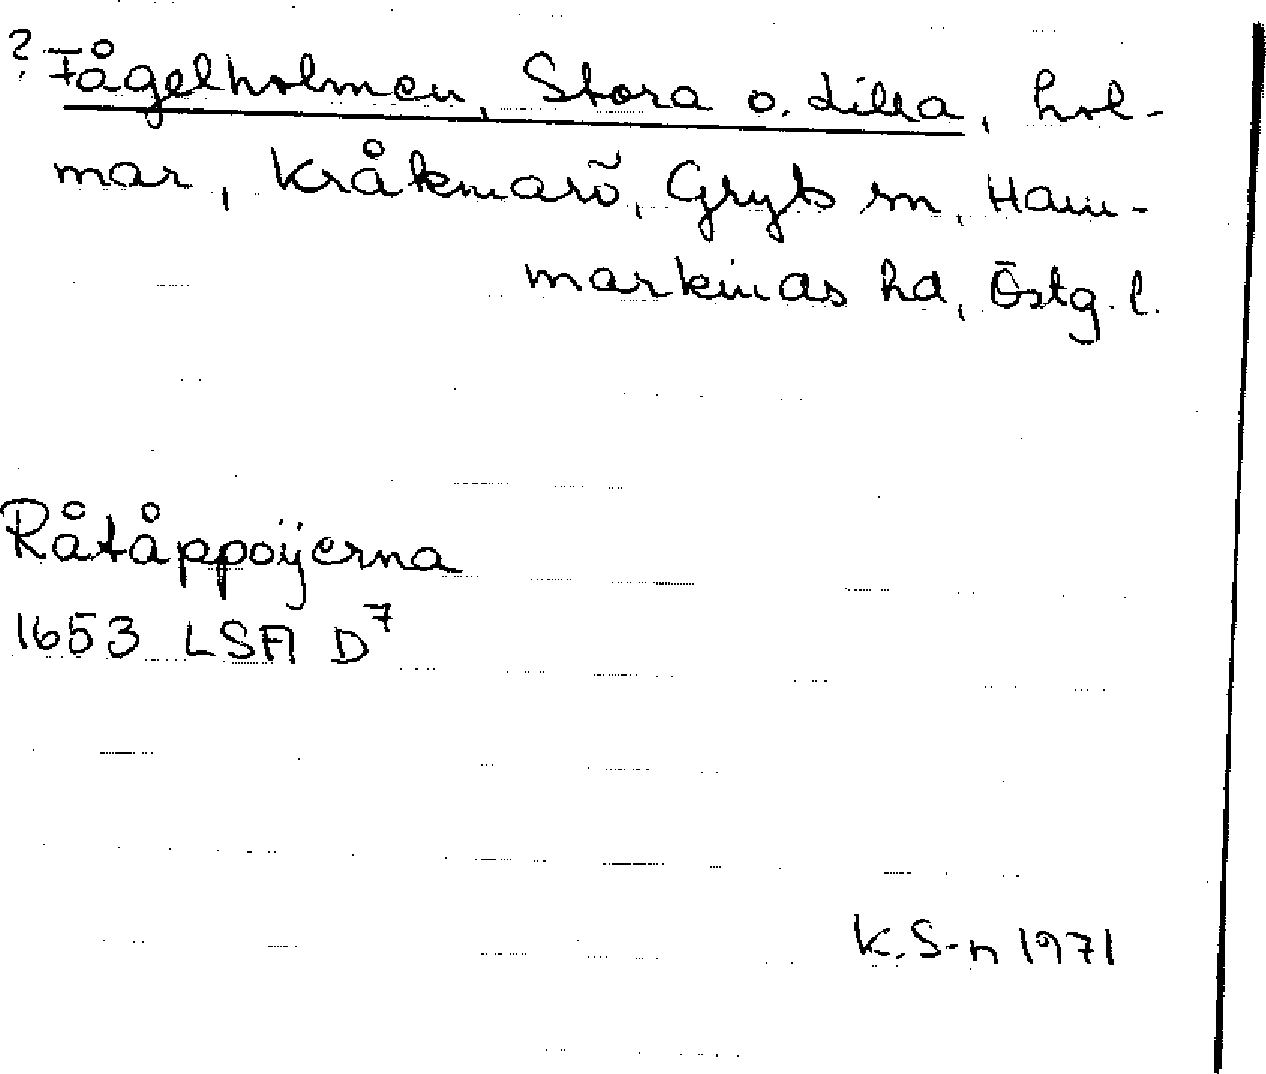 ? Fågelholmen, Stora o. Lilla, hol-
mar, Kråkmarö, Gryts sn, Ham-
markinds hd, Östg. l.
Råtåppöijerna
1653 LSA D⁷
K. S-n 1971